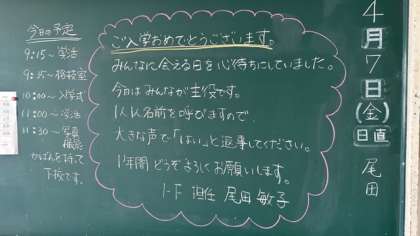 4月7日(金)
日直
尾田
ご入学おめでとうございます。
みんなに会える日を心待ちにしていました。
今日はみんなが主役です。
1人1人名前を呼びますので、
大きな声で「はい」と返事してください。
1年間どうぞよろしくお願いします。
1-F 担任 尾田 敏子
今日の予定
9:15～学活
9:35～移教室
10:00～入学式
11:00～学活
11:30～写真
撮影
かばんを持って
下校です。